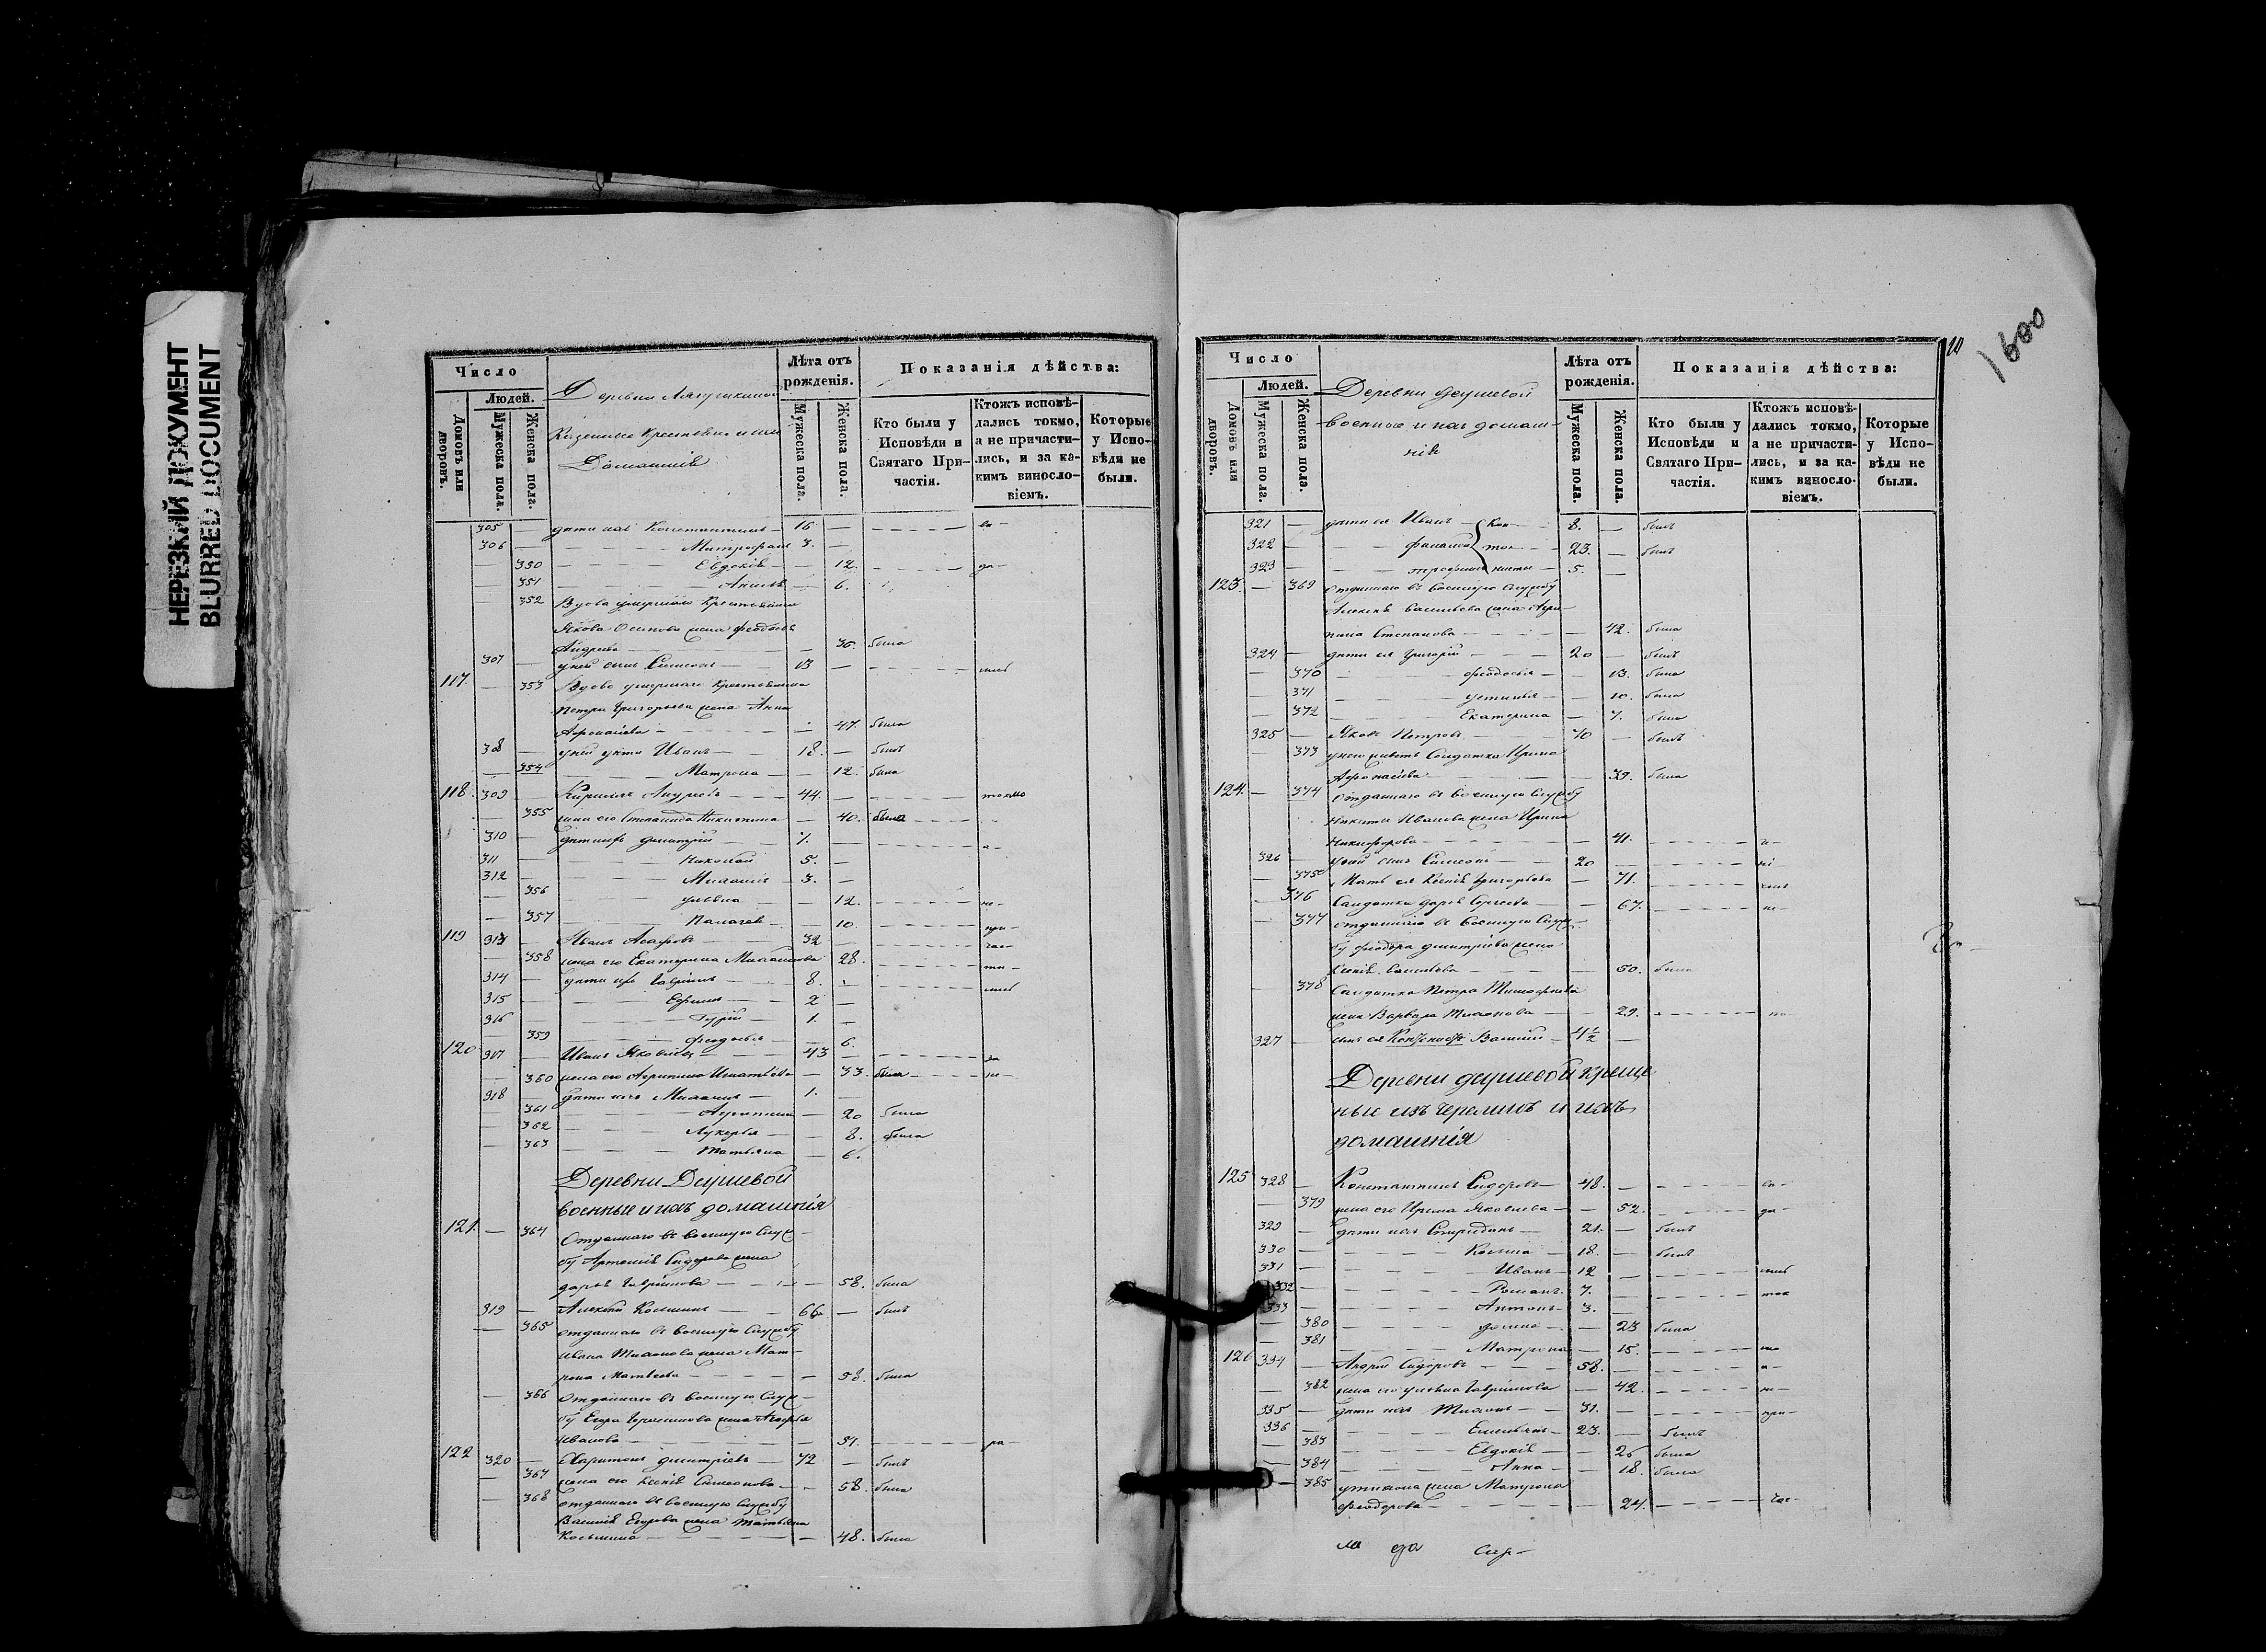 НЕРЕЗКИЙ ДОКУМЕНТ
BLURRED DOCUMENT
Число
Людей.
Домовъ или дворовъ.
Мужеска пола.
Женска пола.
Деревни
Казенные Крестьяне и ихъ
Домашнія
Лѣта отъ рожденія.
Мужеска пола.
Женска пола.
Показанія дѣйства:
Кто были у Исповѣди и Святаго При-частія.
Ктожъ исповѣ-дались токмо, а не причасти-лись, и за ка-кимъ винослο-віемъ.
Которые у Испо-вѣди не были.
305 — дѣти ихъ Константинъ — 16 —
306 — Митрофанъ 3. —
— 350 Евдокія — 12.
— 351 — 6.
— 352 Вдова умершаго Крестьянина
Якова Осипова жена Феодосья
Андреева — 36. была
307 — у ней сынъ Симеонъ — 13 —
117. — 353 Вдова умершаго Крестьянина
Петра Григорьева жена Анна
Афонасьева — 47. была
308 — у ней дѣти Иванъ — 18. — былъ
— 354 Матрона — 12. была
118. 309 — Кириллъ Андреевъ — 44. — токмо
— 355 жена его Степанида Никитина — 40. была
310 — дѣти ихъ Димитрій 7. —
311 — Николай 5. —
312 — Михаилъ 3. —
— 356 Ульяна — 12.
— 357 Палагея — 10.
119 313 — Иванъ — 32 —
— 358 жена его Екатерина Михайлова 28.
314 — дѣти ихъ Гавріилъ — 8.
315 — Ефимъ — 2 —
316 — Гурій — 1. —
359 Феодосья — 6.
120 317 — Иванъ Яковлевъ — 43 — за
— 360 жена его Агрипина Игнатьева — 33. была — не—
318 — дѣти ихъ Михаилъ — 1. —
— 361 Агрипина — 20 была
— 362 Лукерья — 8. была
— 363 Татьяна — 6.
Деревни Деушевой
военные и ихъ домашнія
121. — 364 Отданнаго въ военную служ—
бу Артемія Сидорова жена
Дарья Гаврилова — 58. была
319 — Алексѣй Козминъ — 66. — былъ
— 365 отданнаго въ военную службу
Ивана Тихонова жена Мат—
рона Матвѣева — 58. была
— 366 Отданнаго въ военную служ—
бу Егора Герасимова жена Агафья
Иванова — 57.
122 320 — Харитонъ Димитріевъ — 72 — былъ
— 367 жена его Ксенія Симеонова — 58. была
— 368 отданнаго въ военную службу
Василія Егорова жена Татьяна
Козьмина — 48. была
1600
Число
Людей.
Домовъ или дворовъ.
Мужеска пола.
Женска пола.
Деревни Деушевой
военные и ихъ домаш—
нія
Лѣта отъ рожденія.
Мужеска пола.
Женска пола.
Показанія дѣйства:
Кто были у Исповѣди и Святаго При-частія.
Ктожъ исповѣ-дались токмо, а не причасти-лись, и за ка-кимъ винослο-віемъ.
Которые у Испо-вѣди не были.
321 — дѣти ея Иванъ — Кан— 8. — былъ
322 — то— 23. — былъ
323 — Трофимъ нисты — 5. —
123. — 369 Отданнаго въ военную службу
Алексѣя Васильева жена Агри—
пина Степанова — 42. была
324 — дѣти ея Григорій — 20 — былъ
— 370 Феодосья — 13. была
— 371 Устинья — 10. была
— 372 Екатерина — 7. была
325 — Яковъ Петровъ — 70 — былъ
— 373 у него живетъ Солдатка Ирина
Афонасьева — 39. была
124. — 374 Отданнаго въ военную службу
Никиты Иванова жена Ирина
Никифорова — 41.
326 — у ней сынъ Симеонъ — 20
— 375 Мать ея Ксенія Григорьева — 71.
— 376 Солдатка Дарья Сергѣева — 67.
— 377 отданнаго въ военную служ—
бу Феодора Димитріева жена
Ксенія Васильева — 50. была
— 378 Солдатка Петра Тимофеева
жена Варвара Тихонова — 29.
327 — сынъ ея Василій — 4½ —
Деревни Деушевой Креще
ные изъ черемисъ и ихъ
домашнія
125 328 — Константинъ Сидоровъ — 48.
— 379 жена его Ирина Яковлева — 52.
329 — дѣти ихъ Спиридонъ — 21. — былъ
330 — Козьма — 18. — былъ
331 — Иванъ — 12
332 — Романъ — 7.
333 — Антонъ — 3.
— 380 Домна — 23 была
— 381 Матрона — 15.
126 334 — Андрей Сидоровъ — 58.
— 382 жена его Ульяна Гаврилова — 42.
335 — дѣти ихъ Тихонъ — 31.
336 — Емельянъ — 23. — былъ
— 383 Евдокія — 26 была
— 384 Анна — 18. была
— 385 у Тихона жена Матрона
Феодорова — 24. час—